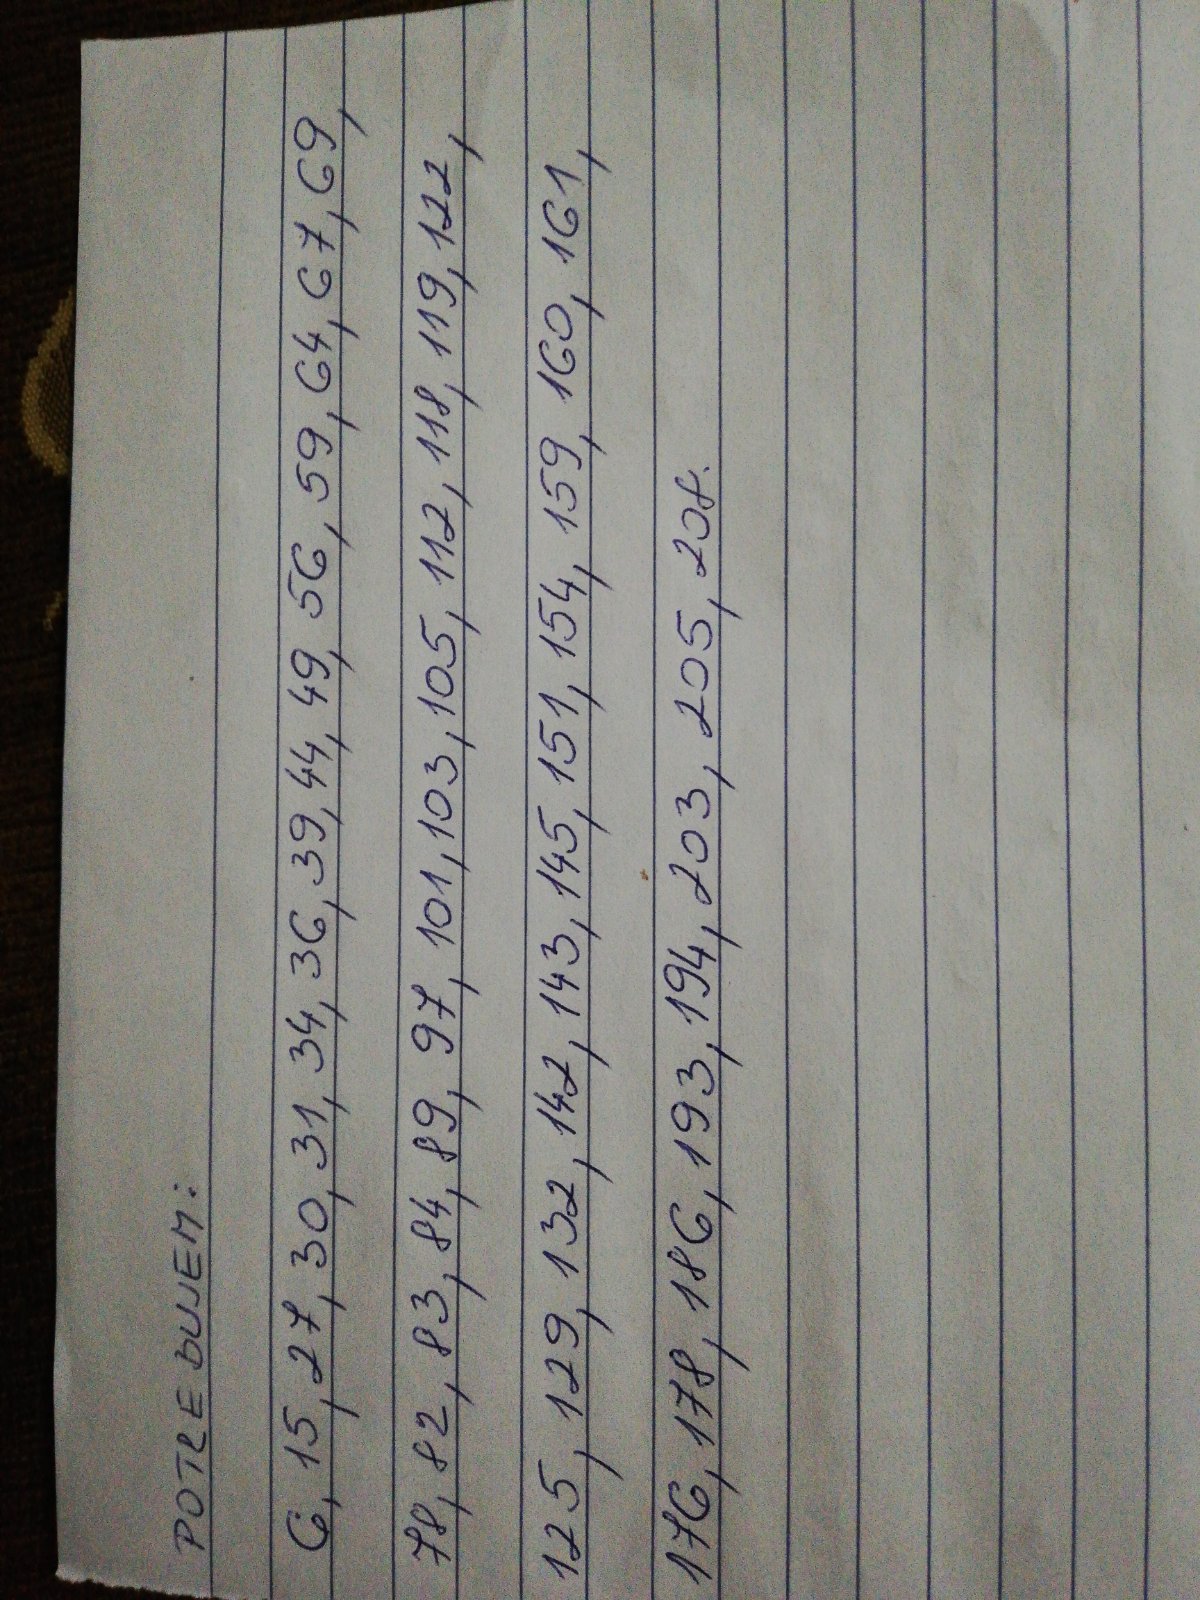 POTREBUJEM:
6, 15, 27, 30, 31, 34, 36, 39, 44, 49, 56, 59, 64, 67, 69,
78, 82, 83, 84, 89, 97, 101, 103, 105, 112, 118, 119, 122,
125, 129, 132, 142, 143, 145, 151, 154, 159, 160, 161,
176, 178, 186, 193, 194, 203, 205, 208.